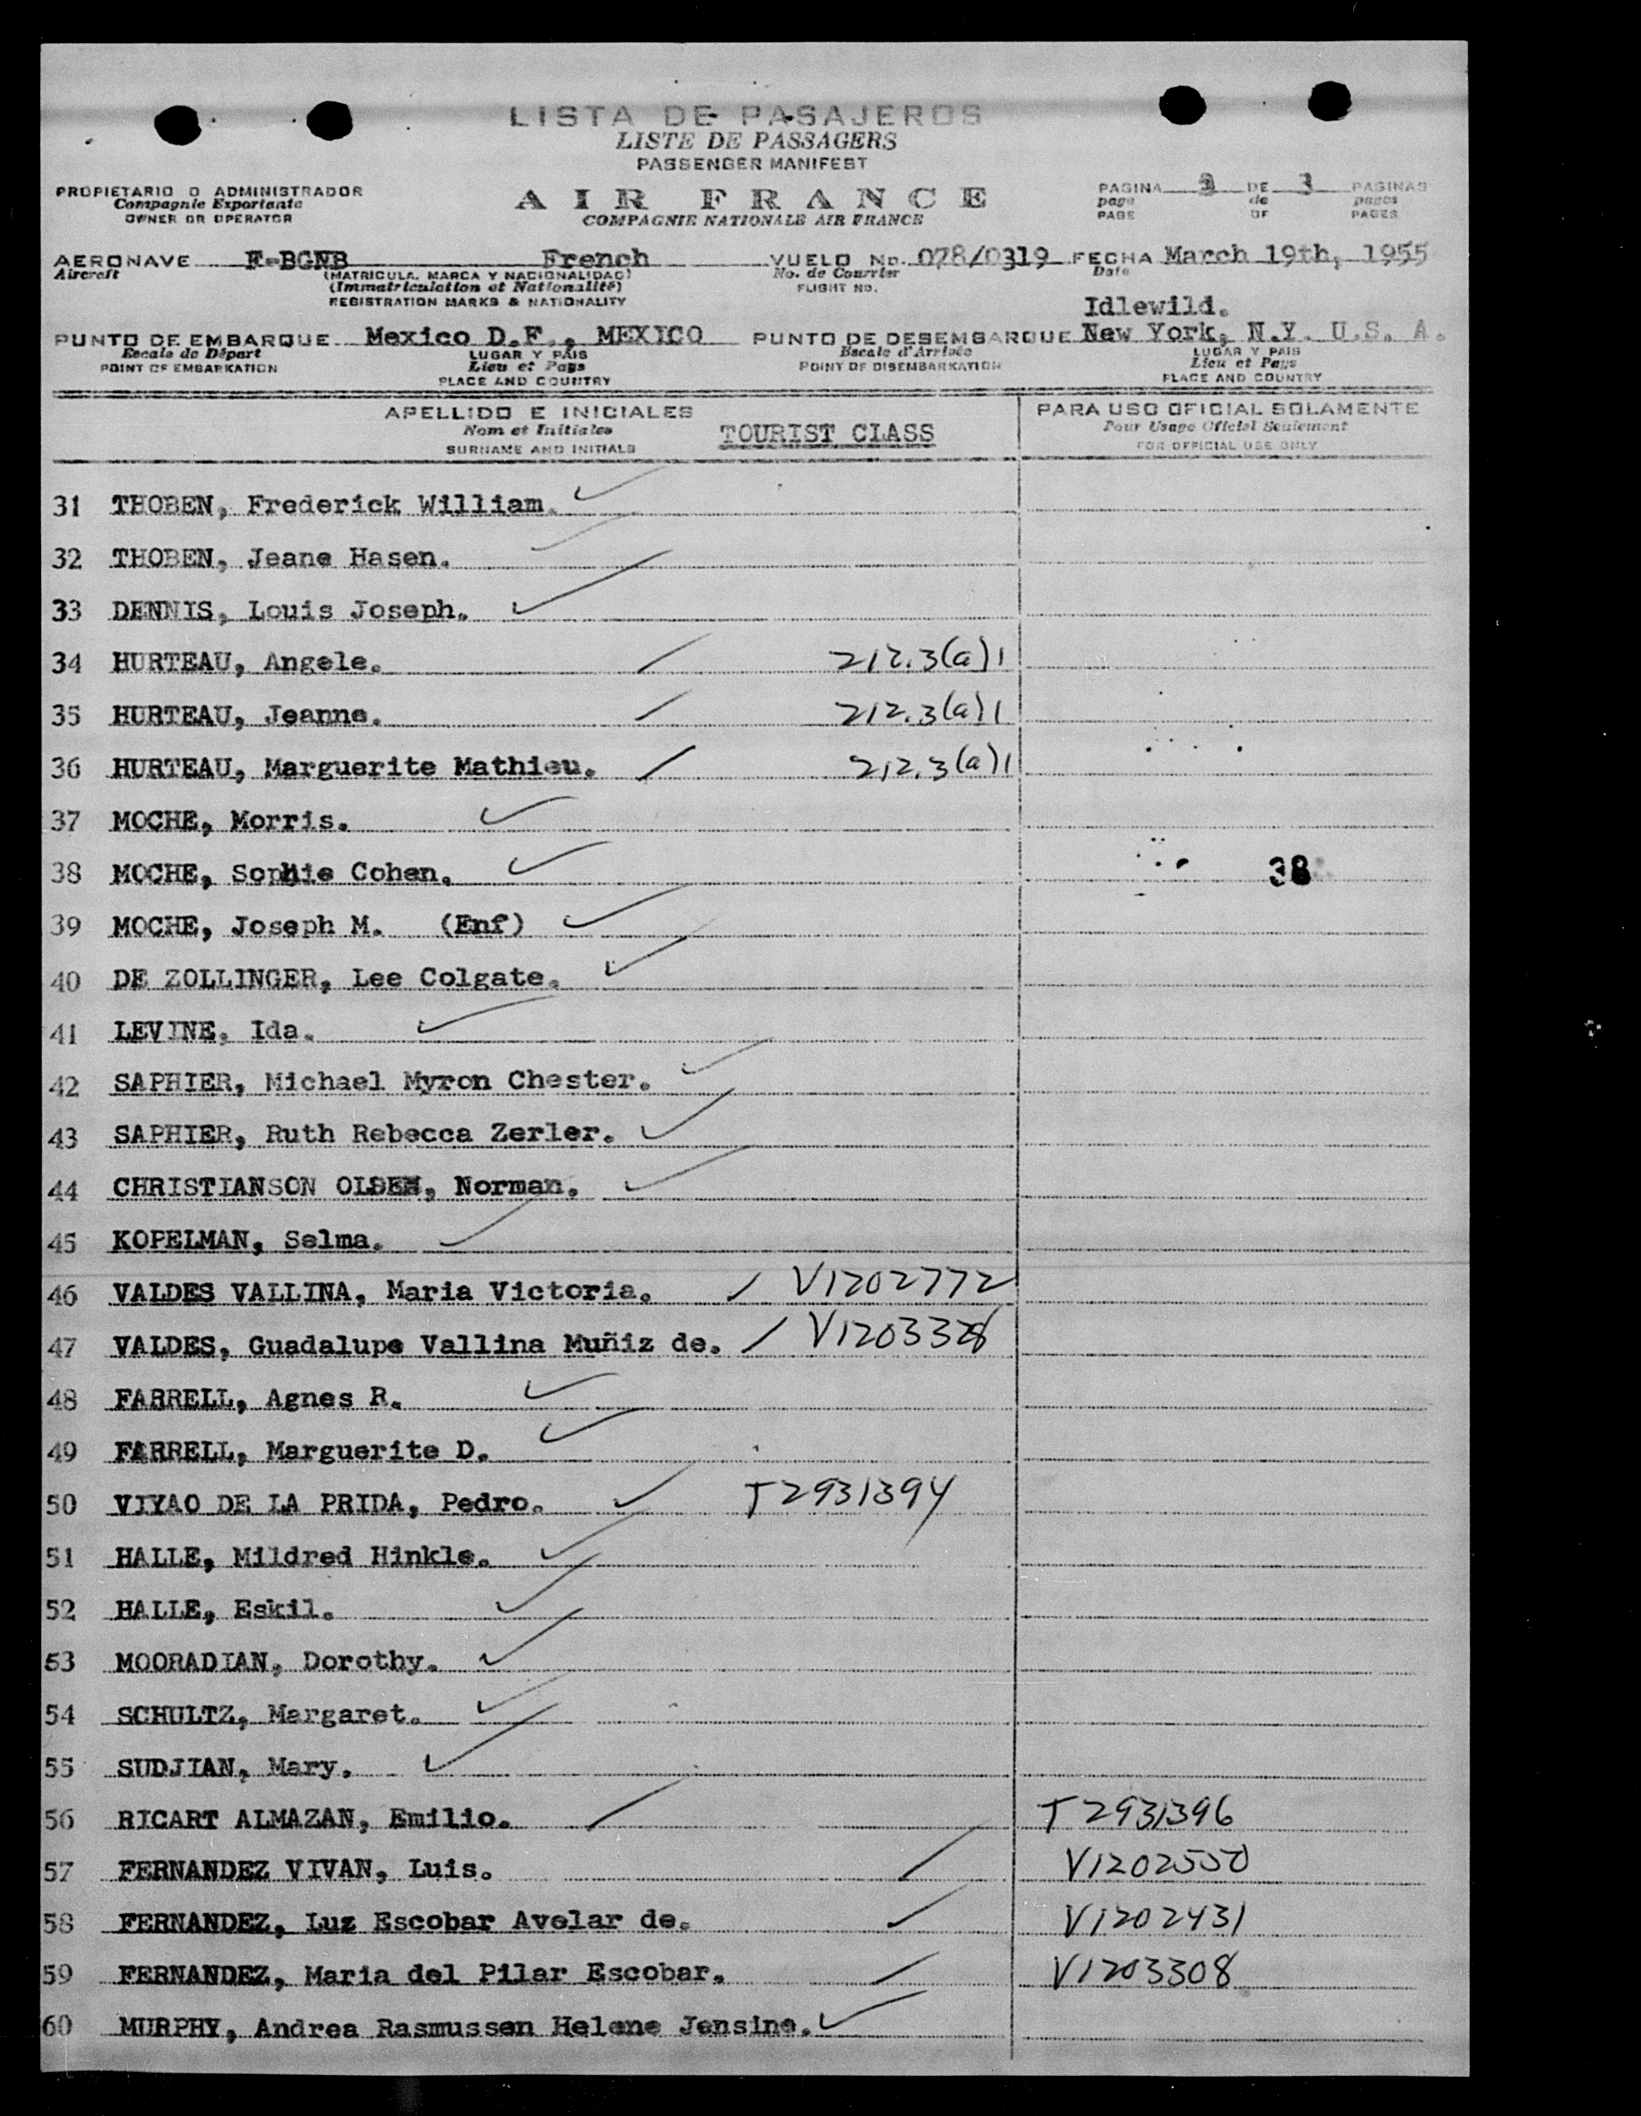 LISTA DE PASAJEROS
LISTE DE PASSAGERS
PASSENGER MANIFEST
PROPIETARIO O ADMINISTRADOR
Compagnie Exportante
OWNER OR OPERATOR
AIR FRANCE
COMPAGNIE NATIONALE AIR FRANCE
PAGINA DE 3 PAGINAS
page de pages
PAGE OF PAGES
AERONAVE F-BGNB French VUELO No. 078/0319 FECHA March 19th, 1955
Aircraft (MATRICULA, MARCA Y NACIONALIDAD) No. de Courrier Date
(Immatriculation et Nationalité) FLIGHT NO.
REGISTRATION MARKS & NATIONALITY
Idlewild.
PUNTO DE EMBARQUE Mexico D.F., MEXICO PUNTO DE DESEMBARQUE New York, N.Y. U.S. A.
Escale de Départ LUGAR Y PAIS Escale d'Arrivée LUGAR Y PAIS
POINT OF EMBARKATION Lieu et Pays POINT OF DISEMBARKATION Lieu et Pays
PLACE AND COUNTRY PLACE AND COUNTRY
APELLIDO E INICIALES PARA USO OFICIAL SOLAMENTE
Nom et Initiales TOURIST CLASS Pour Usage Officiel Seulement
SURNAME AND INITIALS FOR OFFICIAL USE ONLY
31 THOBEN, Frederick William.
32 THOBEN, Jeane Hasen.
33 DENNIS, Louis Joseph.
34 HURTEAU, Angele. 212.3(a)1
35 HURTEAU, Jeanne. 212.3(a)1
36 HURTEAU, Marguerite Mathieu. 212.3(a)1
37 MOCHE, Morris.
38 MOCHE, Sophie Cohen. 38
39 MOCHE, Joseph M. (Enf)
40 DE ZOLLINGER, Lee Colgate.
41 LEVINE, Ida.
42 SAPHIER, Michael Myron Chester.
43 SAPHIER, Ruth Rebecca Zerler.
44 CHRISTIANSON OLSEN, Norman.
45 KOPELMAN, Selma.
46 VALDES VALLINA, Maria Victoria. V1202772
47 VALDES, Guadalupe Vallina Muñiz de. V1203328
48 FARRELL, Agnes R.
49 FARRELL, Marguerite D.
50 VIYAO DE LA PRIDA, Pedro. T2931394
51 HALLE, Mildred Hinkle.
52 HALLE, Eskil.
53 MOORADIAN, Dorothy.
54 SCHULTZ, Margaret.
55 SUDJIAN, Mary.
56 RICART ALMAZAN, Emilio. T2931396
57 FERNANDEZ VIVAN, Luis. V1202550
58 FERNANDEZ, Luz Escobar Avelar de. V1202431
59 FERNANDEZ, Maria del Pilar Escobar. V1203308
60 MURPHY, Andrea Rasmussen Helene Jensine.